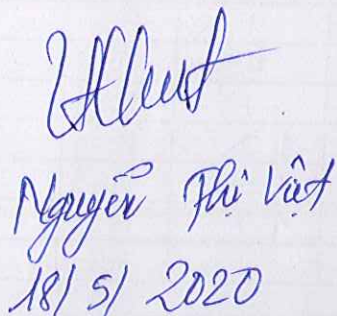 Nguyễn Thị Việt
18/5/2020